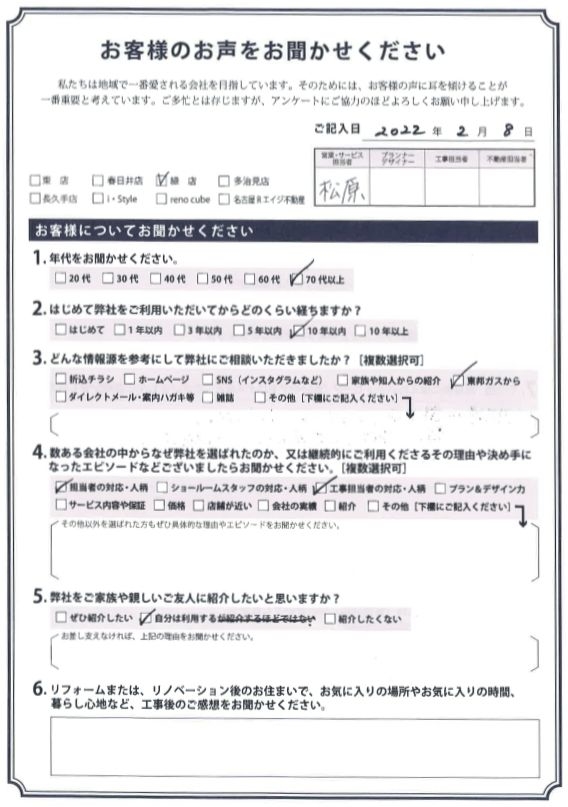 お客様のお声をお聞かせください
私たちは地域で一番愛される会社を目指しています。そのためには、お客様の声に耳を傾けることが
一番重要と考えています。ご多忙とは存じますが、アンケートにご協力のほどよろしくお願い申し上げます。
ご記入日 2022 年 2 月 8 日
営業・サービス担当者 プランナーデザイナー 工事担当者 不動産担当者
松原
□東 店 □春日井店 ☑緑 店 □多治見店
□長久手店 □i・Style □reno cube □名古屋Rエイジ不動産
お客様についてお聞かせください
1. 年代をお聞かせください。
□20代 □30代 □40代 □50代 □60代 ☑70代以上
2. はじめて弊社をご利用いただいてからどのくらい経ちますか？
□はじめて □1年以内 □3年以内 □5年以内 ☑10年以内 □10年以上
3. どんな情報源を参考にして弊社にご相談いただきましたか？［複数選択可］
□折込チラシ □ホームページ □SNS（インスタグラムなど） □家族や知人からの紹介 ☑東邦ガスから
□ダイレクトメール・案内ハガキ等 □雑誌 □その他［下欄にご記入ください］
4. 数ある会社の中からなぜ弊社を選ばれたのか、又は継続的にご利用くださるその理由や決め手に
なったエピソードなどございましたらお聞かせください。［複数選択可］
☑担当者の対応・人柄 □ショールームスタッフの対応・人柄 ☑工事担当者の対応・人柄 □プラン&デザイン力
□サービス内容や保証 □価格 □店舗が近い □会社の実績 □紹介 □その他［下欄にご記入ください］
その他以外を選ばれた方もぜひ具体的な理由やエピソードをお聞かせください。
5. 弊社をご家族や親しいご友人に紹介したいと思いますか？
□ぜひ紹介したい ☑自分は利用するが紹介するほどではない □紹介したくない
お差し支えなければ、上記の理由をお聞かせください。
6. リフォームまたは、リノベーション後のお住まいで、お気に入りの場所やお気に入りの時間、
暮らし心地など、工事後のご感想をお聞かせください。